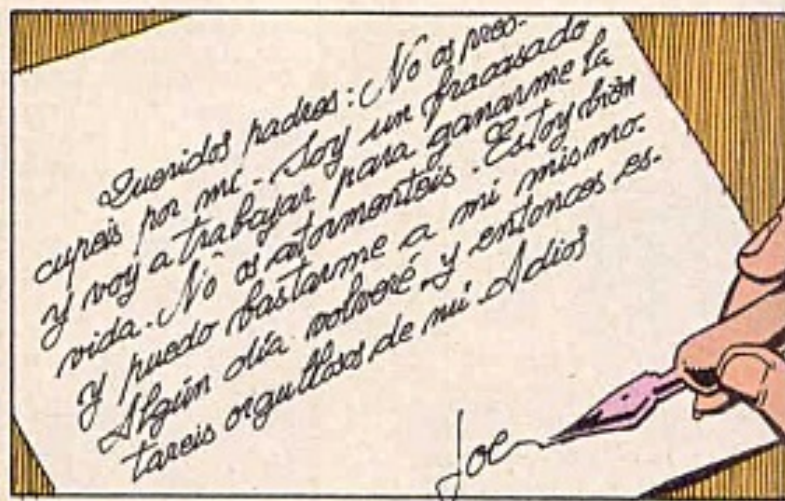 Queridos padres: No os preo-
cupeis por mi. Soy un fracasado
y voy a trabajar para ganarme la
vida. No os atormenteis. Estoy bién
y puedo bastarme a mi mismo.
Algún día volveré y entonces es-
tareis orgullosos de mi. Adios
Joe